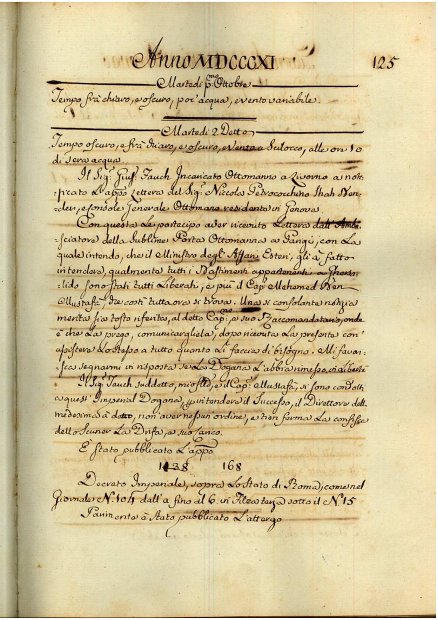 Anno MDCCCXI 125
Martedi p.mo Ottobre
Tempo frà chiaro, e oscuro, poc'acqua, e vento variabile
Martedi 2 Detto
Tempo oscuro, e frà chiaro, e oscuro, e vento a Scilocco, alle ore 10
di sera acqua
Il Sig.r Gius. Fauch Incaricato Ottomanno a Livorno a
Lettera del Sig.r Niccola Petrococchino Shah
e Console Generale Ottomano residente in Genova
Con questa Le partecipo aver ricevuto Lettera dall'
sciatore della Sublime Porta Ottomanna a Parigi, con La
quale intendo, che il Ministro degl'Affari Esteri, gli à fatto
intendere, qualmente tutti i Bastimenti appartenenti a
sono stati tutti Liberati, e più il Cap.n Mehemed Ben
Mustafà, che costì tutt'ora si trova. Una sì consolante notizia
merita sia tosto riferita, al detto Cap.no a suo Raccomandatario, onde
è che La prego, comunicargliela, dopo ricevuta La presente con
a tutto quanto Li faccia di bisogno. Mi
segnarmi in risposta se La Dogana L'abbia messo in Libertà
Il Sig.r Fauch suddetto, e il Cap.no Mustafà, si sono
a questa Imperial Dogana, intendere il Successo, il Direttore della
medesima à detto, non aver nessun ordine, e tien ferma La confisca
dello Scuner La Drifa, e suo Carico.
E stato pubblicato L'app.o
1138 168
Decreto Imperiale, sopra Lo Stato di Roma, come nel
Giornale N.o 104 dall' a fino al 6 in sotto il N.o 15
Parimente à stato pubblicato L'attergo